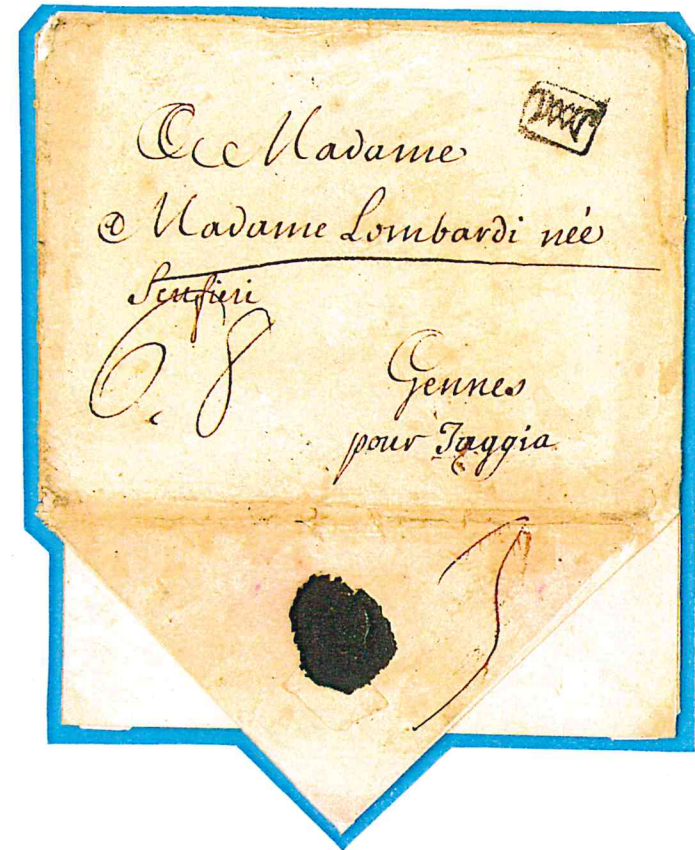 A Madame
Madame Lombardi née
6. 8
Gennes
pour Taggia